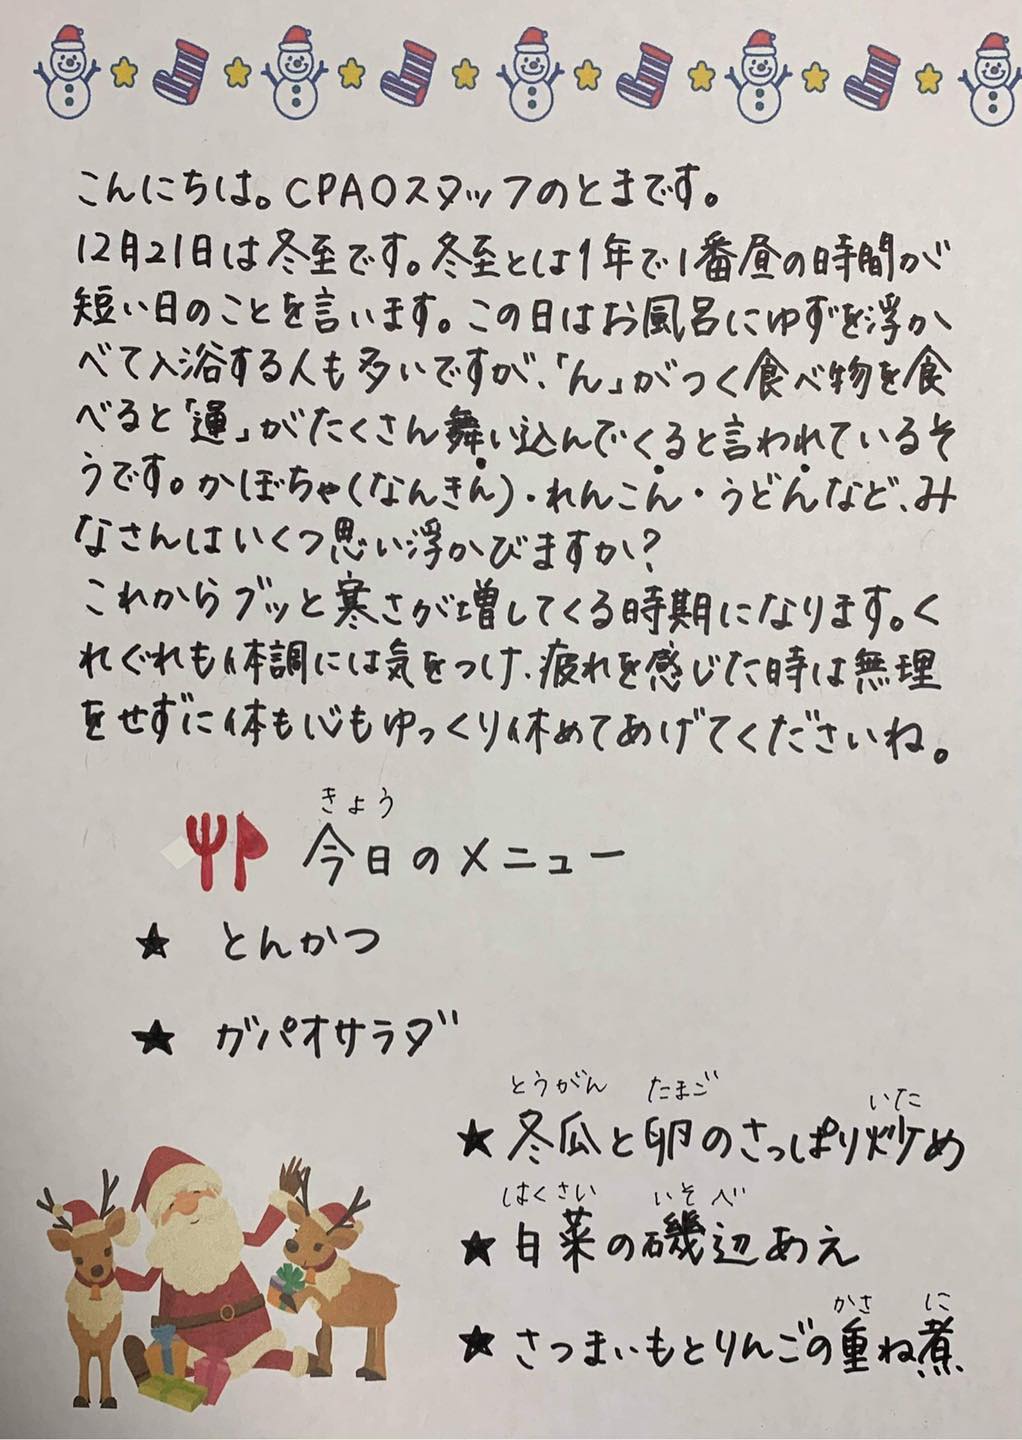 こんにちは。CPAOスタッフのとまです。
12月21日は冬至です。冬至とは1年で1番昼の時間が
短い日のことを言います。この日はお風呂にゆずを浮か
べて入浴する人も多いですが、「ん」がつく食べ物を食
べると「運」がたくさん舞い込んでくると言われているそ
うです。かぼちゃ(なんきん)・れんこん・うどんなど、み
なさんはいくつ思い浮かびますか?
これからグッと寒さが増してくる時期になります。く
れぐれも体調には気をつけ、疲れを感じた時は無理
をせずに体も心もゆっくり休めてあげてくださいね。
きょう
今日のメニュー
★ とんかつ
★ ガパオサラダ
とうがん たまご いた
★ 冬瓜と卵のさっぱり炒め
はくさい いそべ
★ 白菜の磯辺あえ
かさ に
★ さつまいもとりんごの重ね煮